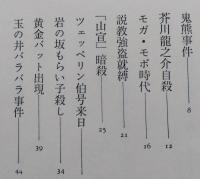 鬼熊事件――8
芥川龍之介自殺――12
モガ・モボ時代――16
説教強盗就縛――21
「山宣」暗殺――25
ツェッペリン伯号来日
岩の坂もらい子殺し――34
黄金バット出現――39
玉の井バラバラ事件――44